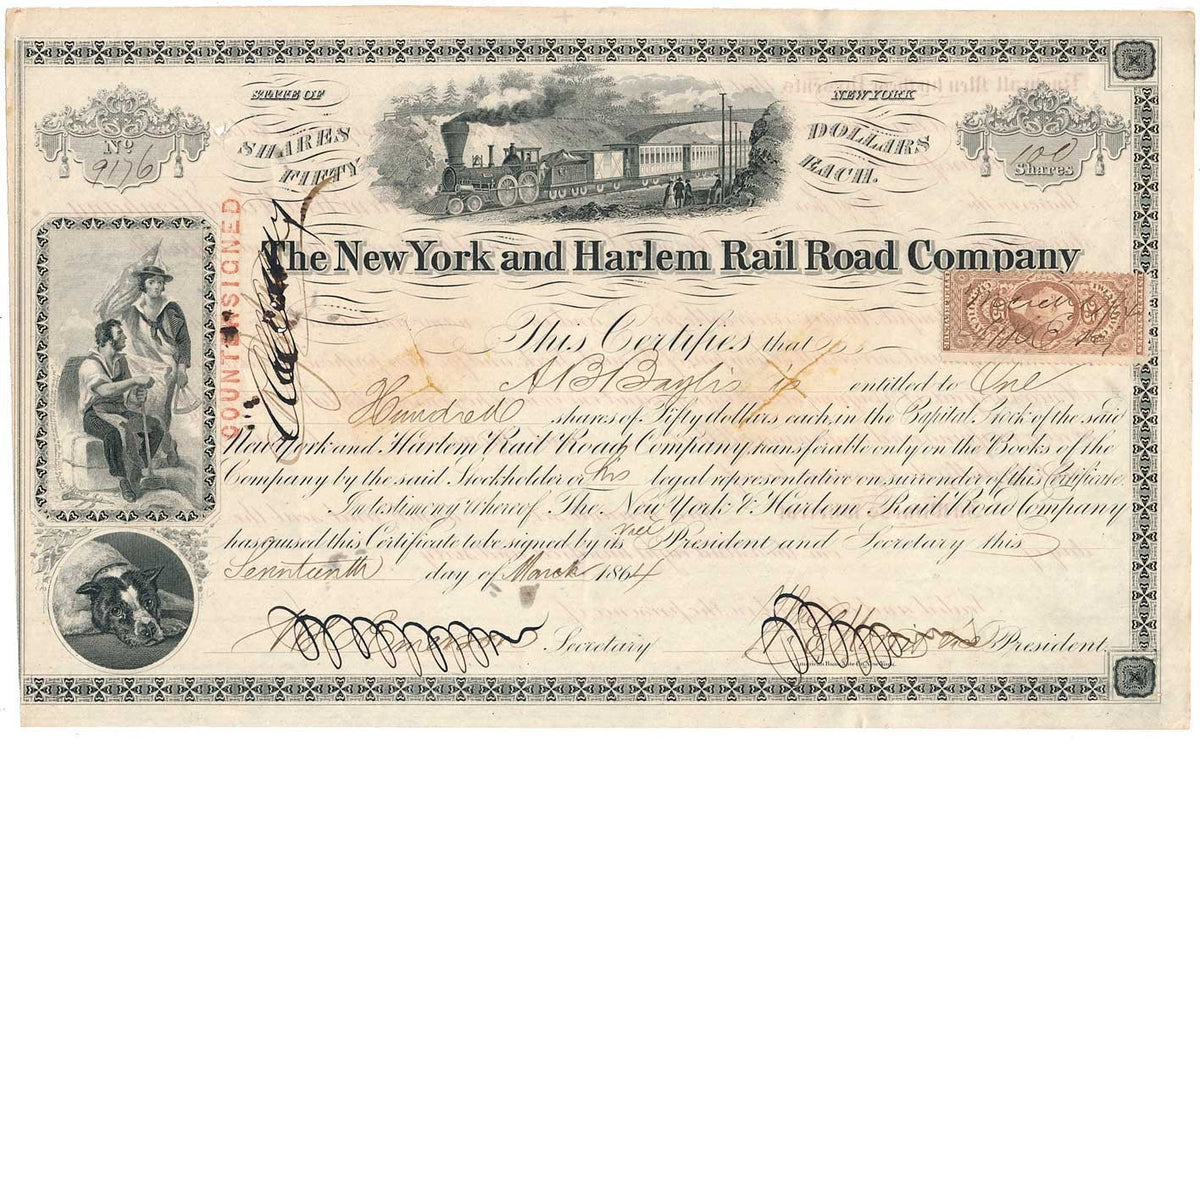 STATE OF NEW YORK
No 9176
SHARES FIFTY DOLLARS EACH.
100 Shares
COUNTERSIGNED
The New York and Harlem Rail Road Company
25 25
This Certifies that
A B Baylis is entitled to One
Hundred shares of Fifty dollars each, in the Capital Stock of the said
New York and Harlem Rail Road Company transferable only on the Books of the
Company by the said Stockholder or his legal representative on surrender of this Certificate.
In testimony whereof The New York & Harlem Rail Road Company
has caused this Certificate to be signed by its vice President and Secretary this
Seventeenth day of March 1864
Secretary President.
American Bank Note Co. New York.